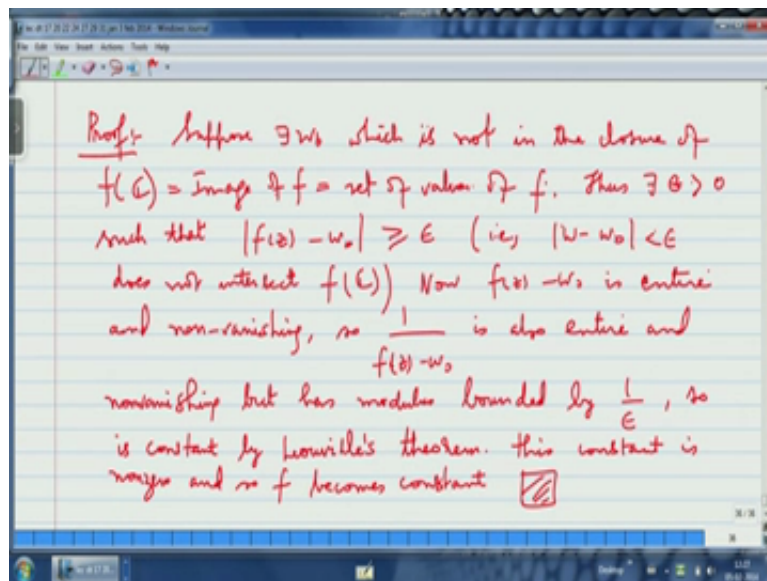 File Edit View Insert Actions Tools Help
Proof:- Suppose ∃ w₀ which is not in the closure of
f(ℂ) = Image of f = set of values of f. Thus ∃ ϵ > 0
such that |f(z) - w₀| ≥ ϵ (ie, |w - w₀| < ϵ
does not intersect f(ℂ)) Now f(z) - w₀ is entire
and non-vanishing, so 1/(f(z) - w₀) is also entire and
nonvanishing but has modulus bounded by 1/ϵ, so
is constant by Liouville's theorem. This constant is
nonzero and so f becomes constant
36/36
36
Desktop